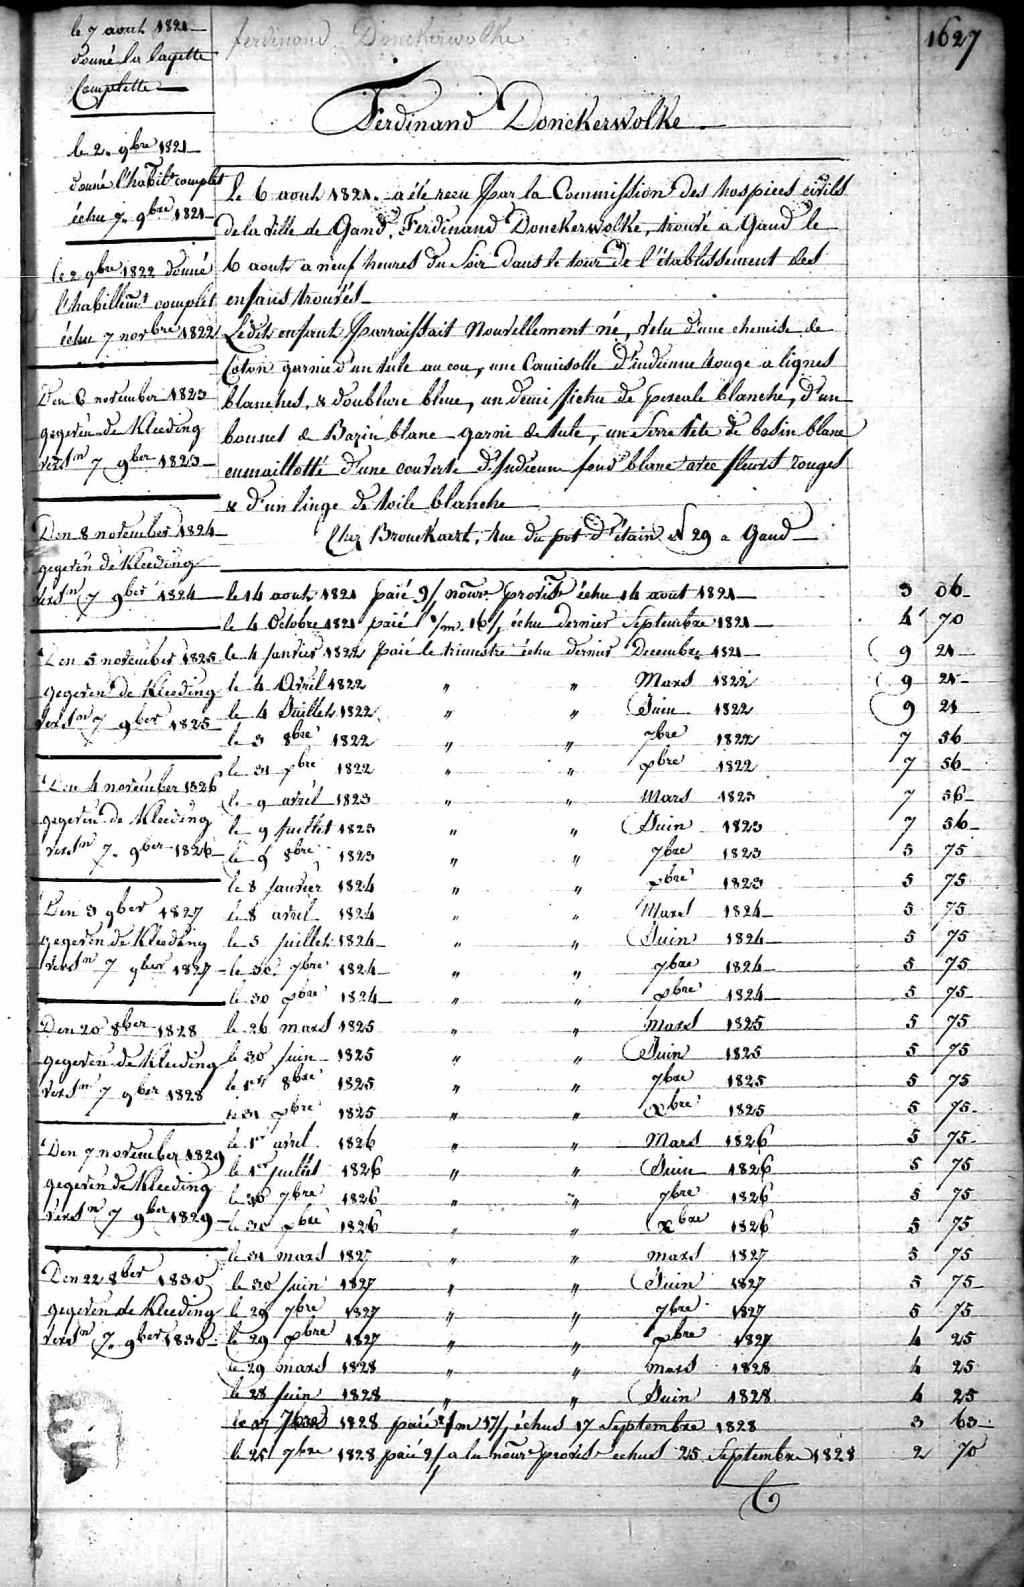 le 7 aout 1821
donné la layette
Complette
le 2. 9bre 1821
donné l'habilt complet
échu 7. 9bre 1821
le 2 9bre 1822 donné
l'habillemt complet
échu 7 novbre 1822
Den 6 november 1823
gegeven de Kleeding
versn 7 9ber 1823
Den 8 november 1824
gegeven de Kleeding
versn 7 9ber 1824
Den 5 november 1825
gegeven de Kleeding
versn 7 9ber 1825
Den 4 november 1826
gegeven de Kleeding
versn 7. 9ber 1826
Den 3 9ber 1827
gegeven de Kleeding
versn 7 9ber 1827
Den 20 8ber 1828
gegeven de Kleeding
versn 7 9ber 1828
Den 7 november 1829
gegeven de Kleeding
versn 7 9ber 1829
Den 22 8ber 1830
gegeven de Kleeding
versn 7. 9ber 1830
ferdinand Donckerwolke
1627
Ferdinand Donckerwolke
Le 6 aout 1821. a été recu par la Commission des hospices civils
de la ville de Gand, Ferdinand Donckerwolke, trouvé a Gand le
6 aout a neuf heures du Soir dans le tour de l'établissement des
enfans trouvés
Ledit enfant parraissait Nouvellement né, vetu d'une chemise de
Coton garnie d'un tule au cou, une Camisolle d'indienne rouge a lignes
blanches, & doublure bleue, un demi fichu de percale blanche, d'un
bonnet de Bazin blanc garni de tule, un Serre tete de basin blanc
emmaillotté d'une couverte d'Indienne fond blanc avec fleurs rouges
& d'un linge de toile blanche
Chez Brouckaert, Rue du pot d'étain N 29 a Gand
le 14 aout 1821 paié 9/ nour. provis échu 14 aout 1821 3 06
le 4 Octobre 1821 paié 1/m. 16/ échu dernier Septembre 1821 4 70
le 4 Janvier 1822 paié le trimestre échu dernier Decembre 1821 9 21
le 4 Avril 1822 " " Mars 1822 9 21
le 4 Juillet 1822 " " Juin 1822 9 21
le 3 8bre 1822 " " 7bre 1822 7 56
le 31 xbre 1822 " " xbre 1822 7 56
le 9 avril 1823 " " Mars 1823 7 56
le 9 Juillet 1823 " " Juin 1823 7 56
le 9 8bre 1823 " " 7bre 1823 5 75
le 8 Janvier 1824 " " xbre 1823 5 75
le 8 avril 1824 " " Mars 1824 5 75
le 5 Juillet 1824 " " Juin 1824 5 75
le 30 7bre 1824 " " 7bre 1824 5 75
le 30 xbre 1824 " " xbre 1824 5 75
le 26 mars 1825 " " Mars 1825 5 75
le 30 Juin 1825 " " Juin 1825 5 75
le 1er 8bre 1825 " " 7bre 1825 5 75
le 31 xbre 1825 " " xbre 1825 5 75
le 1r avril 1826 " " Mars 1826 5 75
le 1er Juillet 1826 " " Juin 1826 5 75
le 30 7bre 1826 " " 7bre 1826 5 75
le 30 xbre 1826 " " xbre 1826 5 75
le 31 mars 1827 " " mars 1827 5 75
le 30 Juin 1827 " " Juin 1827 5 75
le 29 7bre 1827 " " 7bre 1827 5 75
le 29 xbre 1827 " " xbre 1827 4 25
le 29 mars 1828 " " mars 1828 4 25
le 28 Juin 1828 " " Juin 1828 4 25
le 17 7bre 1828 paié 2/m 17/ échus 17 Septembre 1828 3 63
le 25 7bre 1828 paié 9/ a la nour provis echus 25 Septembre 1828 2 70